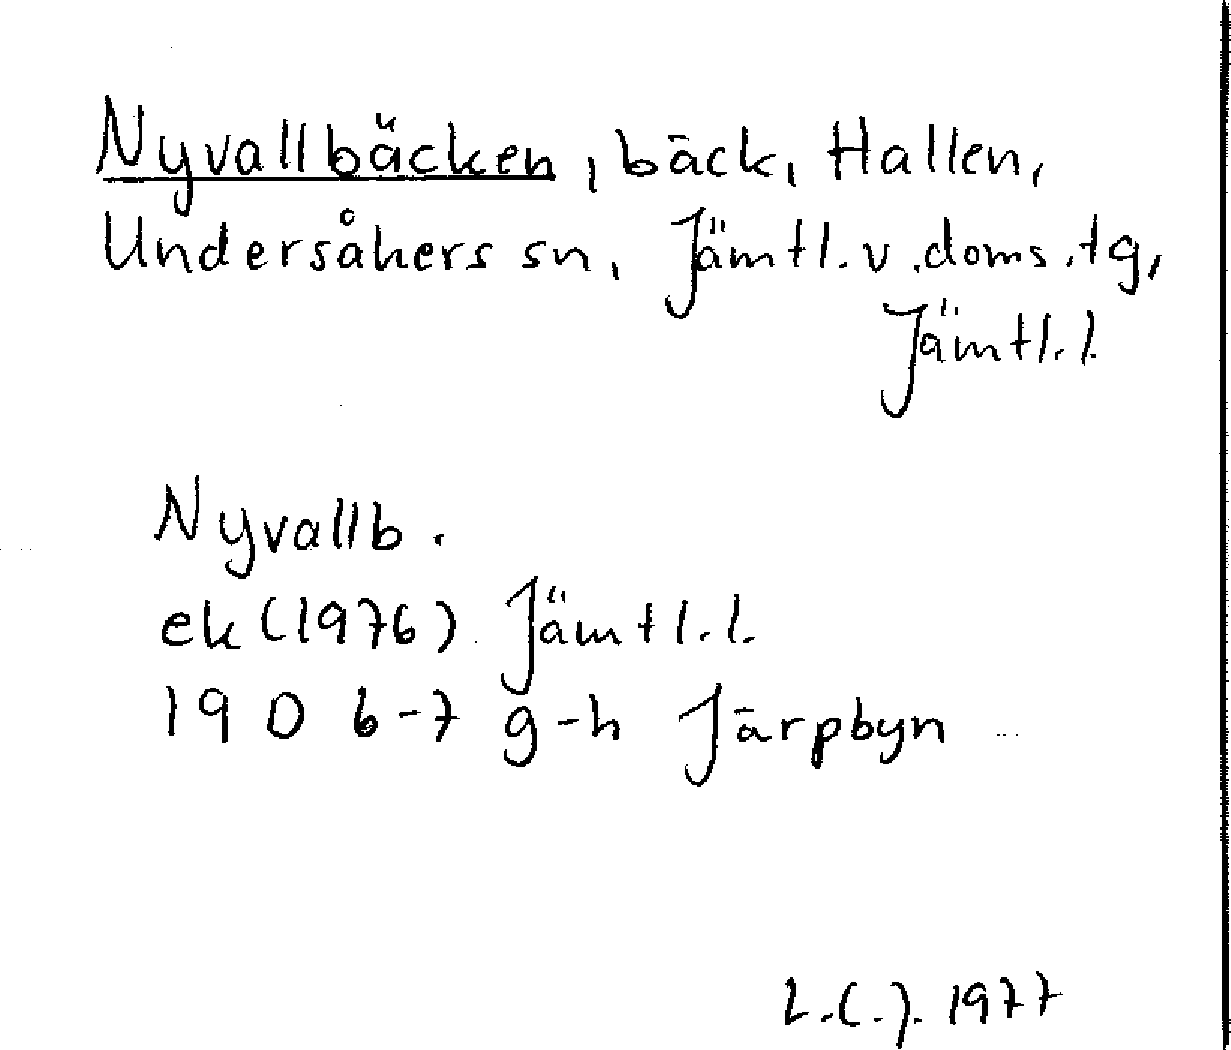 Nyvallbäcken, bäck, Hallen,
Undersåkers sn, Jämtl. v. doms. tg,
Jämtl. l.
Nyvallb.
ek (1976) Jämtl. l.
19 D 6-7 g-h Järpbyn
L.C.J. 1977